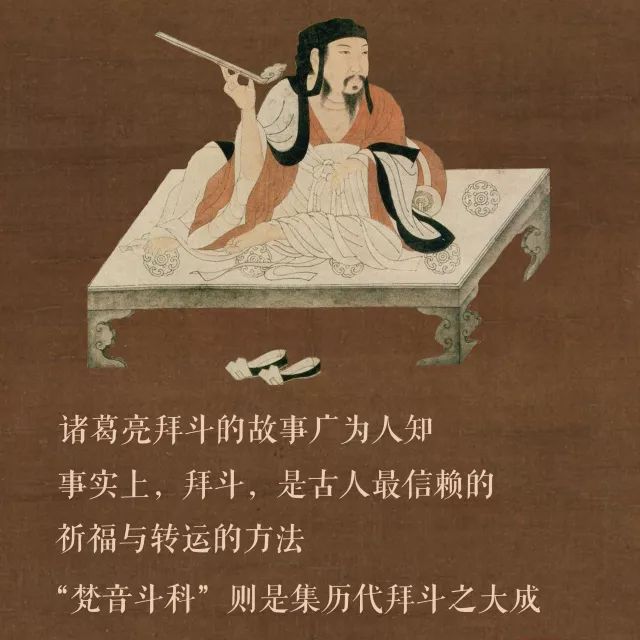 诸葛亮拜斗的故事广为人知
事实上，拜斗，是古人最信赖的
祈福与转运的方法
“梵音斗科”则是集历代拜斗之大成